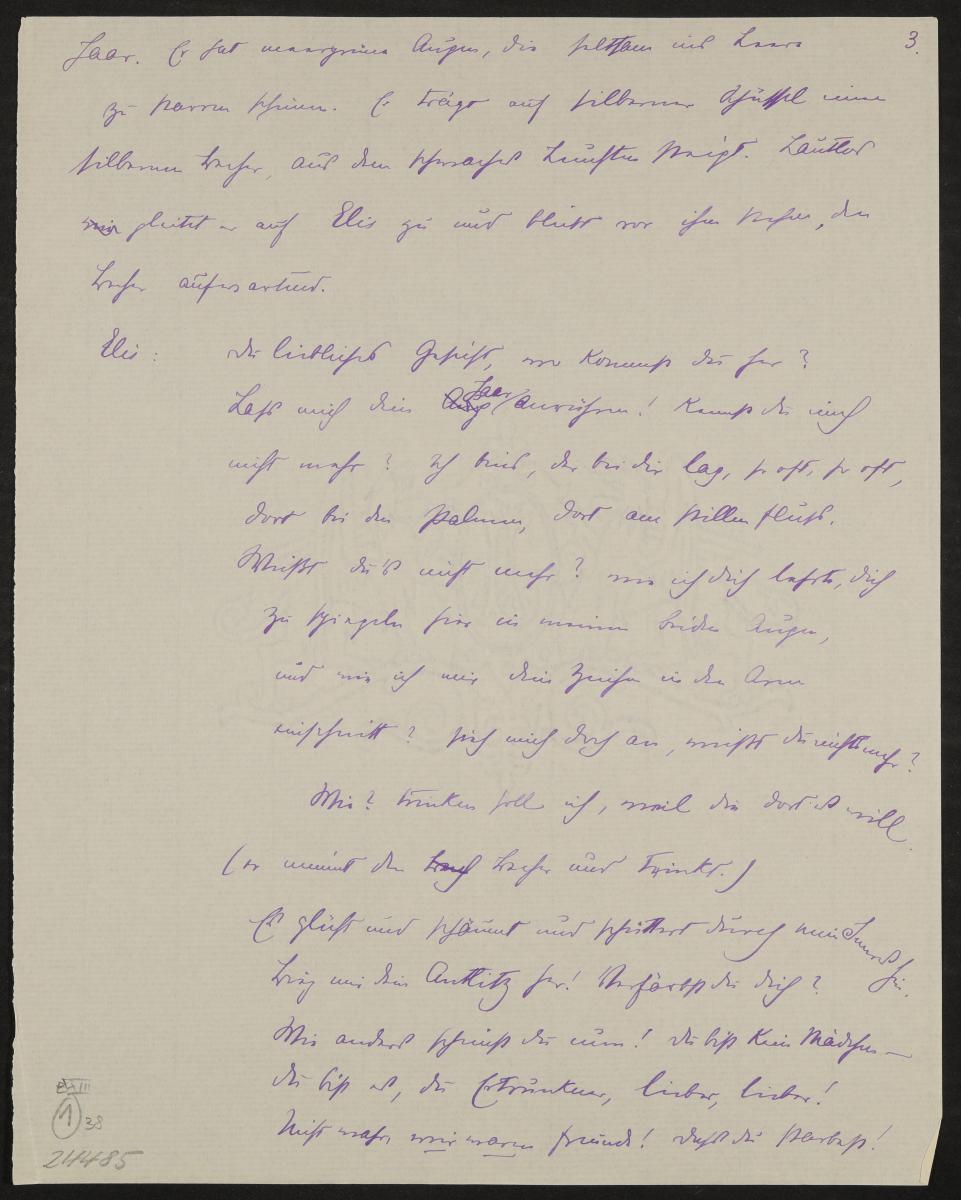 3.
Haar. Er hat meergrüne Augen, die seltsam ins Leere
zu starren scheinen. Er trägt auf silberner Schüssel einen
silbernen Becher, aus dem schwaches Leuchten steigt. Lautlos
gleitet er auf Elis zu und bleibt vor ihm stehen, den
Becher aufwartend.
Elis: Du liebliches Gesicht, wo kommst du her?
Lass mich dein Haar anrühren! Kennst du mich
nicht mehr? Ich bins, der bei dir lag, so oft, so oft,
dort bei den Palmen, dort am stillen Fluss.
Weisst du's nicht mehr? wie ich dich lehrte, dich
zu spiegeln hier in meinen beiden Augen,
und wie ich mir dein Zeichen in den Arm
einschnitt? Sieh mich doch an, weisst du nichts mehr?
Wie? trinken soll ich, weil du dort es will
(er nimmt den Becher und trinkt.)
Es glüht und schäumt und schüttert durch mein Innres hin.
Bieg mir dein Antlitz her! Verfärbst du dich?
Wie anders scheinst du nun! Du bist kein Mädchen —
du bist es, du Ertrunkner, lieber, lieber!
Nicht wahr, wir waren Freunde! Dass du starbst!
EH III
1 38
211485